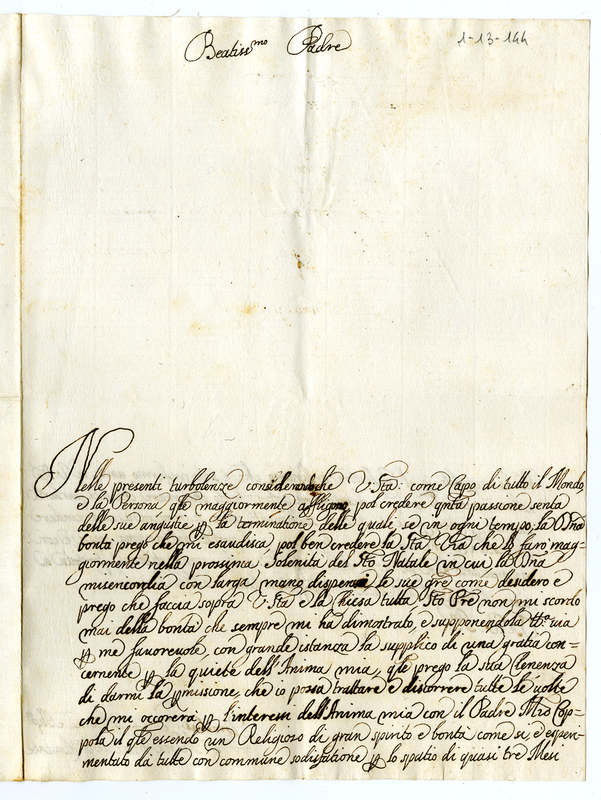 Beatiss.mo Padre
1-13-144
Nelle presenti turbolenze considerando che V. Sta: come Capo di tutto il Mondo
è la Persona qle maggiormente affligono, pol credere qnta passione senta
delle sue angustie ꝑ la terminatione delle quali, se in ogni tempo, la Dna
bontà prego che mi esaudisca pol ben credere la Sta. Vra che lo faro mag=
giormente nella prossima Solenità del Sto Natale in cui la Dna
misericordia con larga mano dispensa le sue gre come desidero e
prego che faccia sopra V. Sta e la Chiesa tutta. Sto Pre non mi scordo
mai della bontà che sempre mi ha dimostrato, e supponendola tt.a via
ꝑ me favorevole con grande istanza la supplico di una gratia con=
cernente ꝑ la quiete dell'Anima mia, qle prego la sua Clemenza
di darmi la ꝑmissione, che io possa trattare e discorrere tutte le volte
che mi occorerà ꝑ l'interessi dell'Anima mia con il Padre Mro Cop=
pola il qle essendo un Religioso di gran spirito e bontà come si, è esperi=
mentato da tutte con commune sodisfatione ꝑ lo spatio di quasi tre Mesi